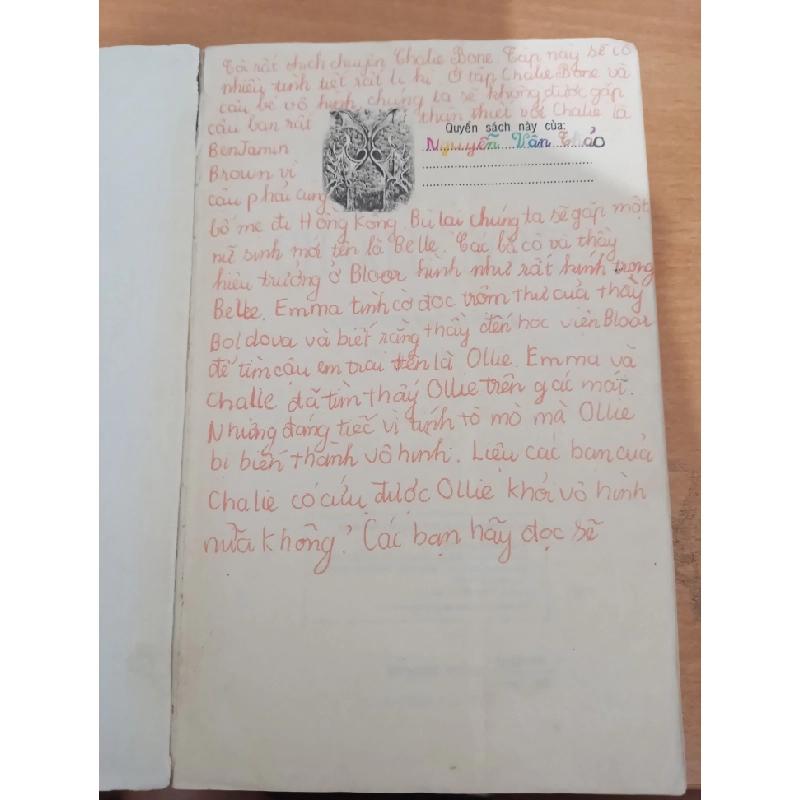 Tôi rất thích chuyện Chalie Bone. Tập này sẽ có
nhiều tình tiết rất li kì. Ở tập Chalie Bone và
cậu bé vô hình, chúng ta sẽ không được gặp
cậu bạn rất thân thiết với Chalie là
Quyển sách này của:
Nguyễn Vân Thảo
BenJamin
Brown vì
cậu phải cùng
bố mẹ đi Hồng Kong. Bù lại chúng ta sẽ gặp một
nữ sinh mới tên là Belle. Các bà cô và thầy
hiệu trưởng ở Bloor hình như rất kính trọng
Belle. Emma tình cờ đọc trộm thư của thầy
Boldova và biết rằng thầy đến học viện Bloor
để tìm cậu em trai tên là Ollie. Emma và
Chalie đã tìm thấy Ollie trên gác mái.
Nhưng đáng tiếc vì tính tò mò mà Ollie
bị biến thành vô hình. Liệu các bạn của
Chalie có cứu được Ollie khỏi vô hình
nữa không? Các bạn hãy đọc sẽ